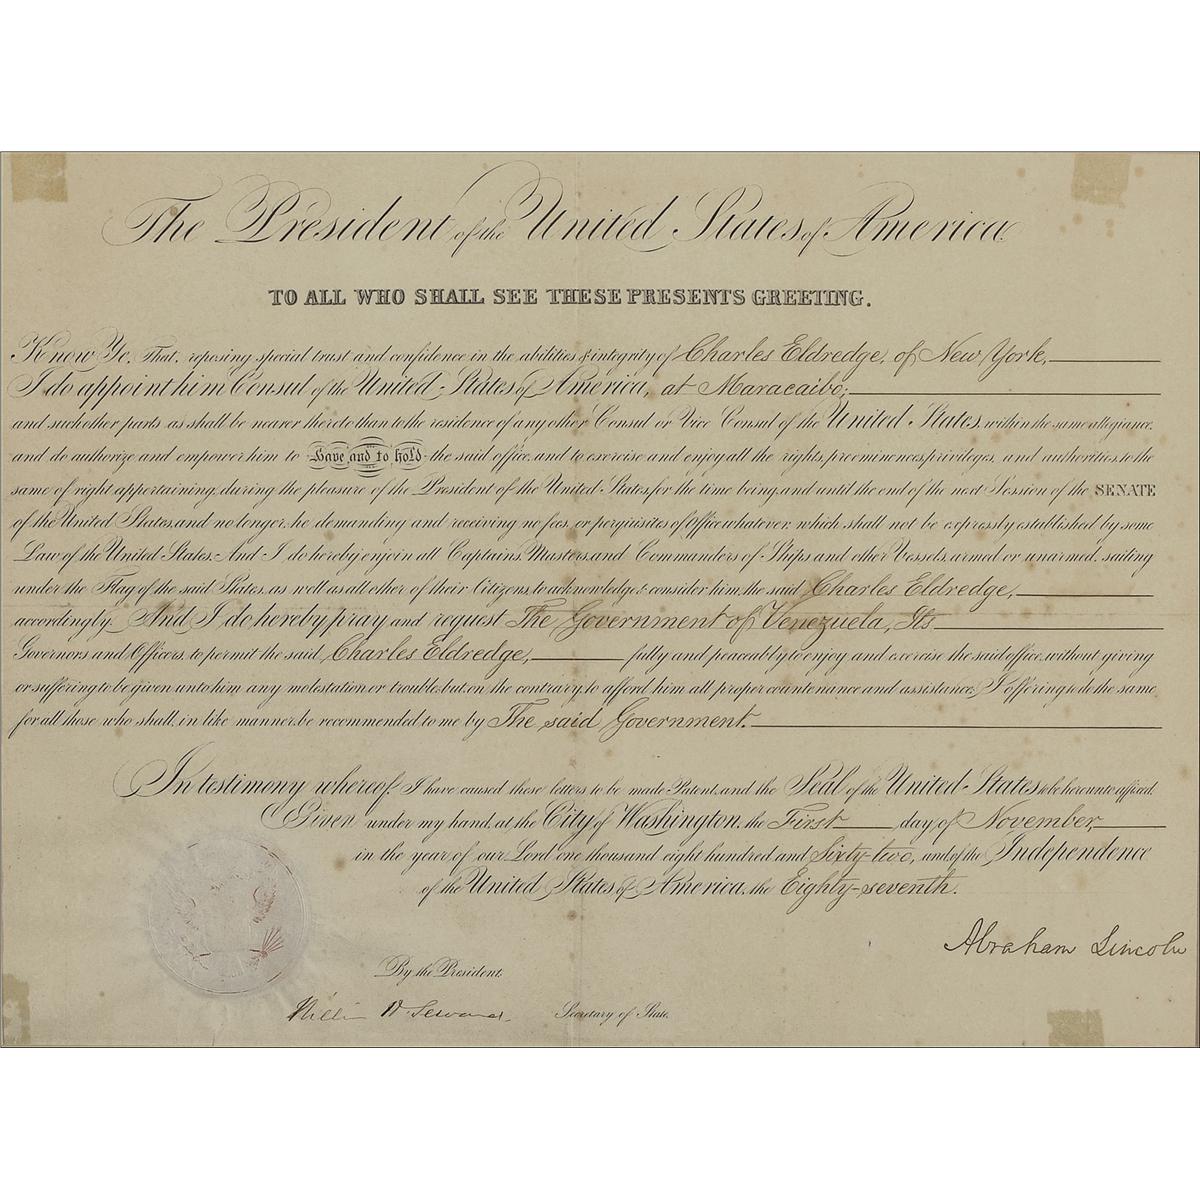 The President of the United States of America.
TO ALL WHO SHALL SEE THESE PRESENTS GREETING.
Know Ye, That, reposing special trust and confidence in the abilities & integrity of Charles Eldredge, of New York,
I do appoint him Consul of the United States of America, at Maracaibo;
and such other parts as shall be nearer thereto than to the residence of any other Consul or Vice Consul of the United States, within the same allegiance,
and do authorize and empower him to Have and to hold the said office, and to exercise and enjoy all the rights, preeminences, privileges, and authorities, to the
same of right appertaining, during the pleasure of the President of the United States, for the time being, and until the end of the next Session of the SENATE
of the United States, and no longer; he demanding and receiving no fees, or perquisites of Office whatever, which shall not be expressly established by some
Law of the United States. And I do hereby enjoin all Captains, Masters, and Commanders of Ships and other Vessels, armed or unarmed, sailing
under the Flag of the said States, as well as all other of their Citizens, to acknowledge & consider him, the said Charles Eldredge,
accordingly. And I do hereby pray and request The Government of Venezuela, Its
Governors and Officers, to permit the said Charles Eldredge, fully and peaceably to enjoy and exercise the said office, without giving
or suffering to be given unto him any molestation or trouble, but, on the contrary, to afford him all proper countenance and assistance; I offering to do the same,
for all those who shall, in like manner, be recommended to me by The said Government.
In testimony whereof, I have caused these letters to be made Patent, and the Seal of the United States to be hereunto affixed.
Given under my hand, at the City of Washington, the First day of November,
in the year of our Lord one thousand eight hundred and Sixty-two, and of the Independence
of the United States of America, the Eighty-seventh.
Abraham Lincoln
By the President.
William H Seward Secretary of State.